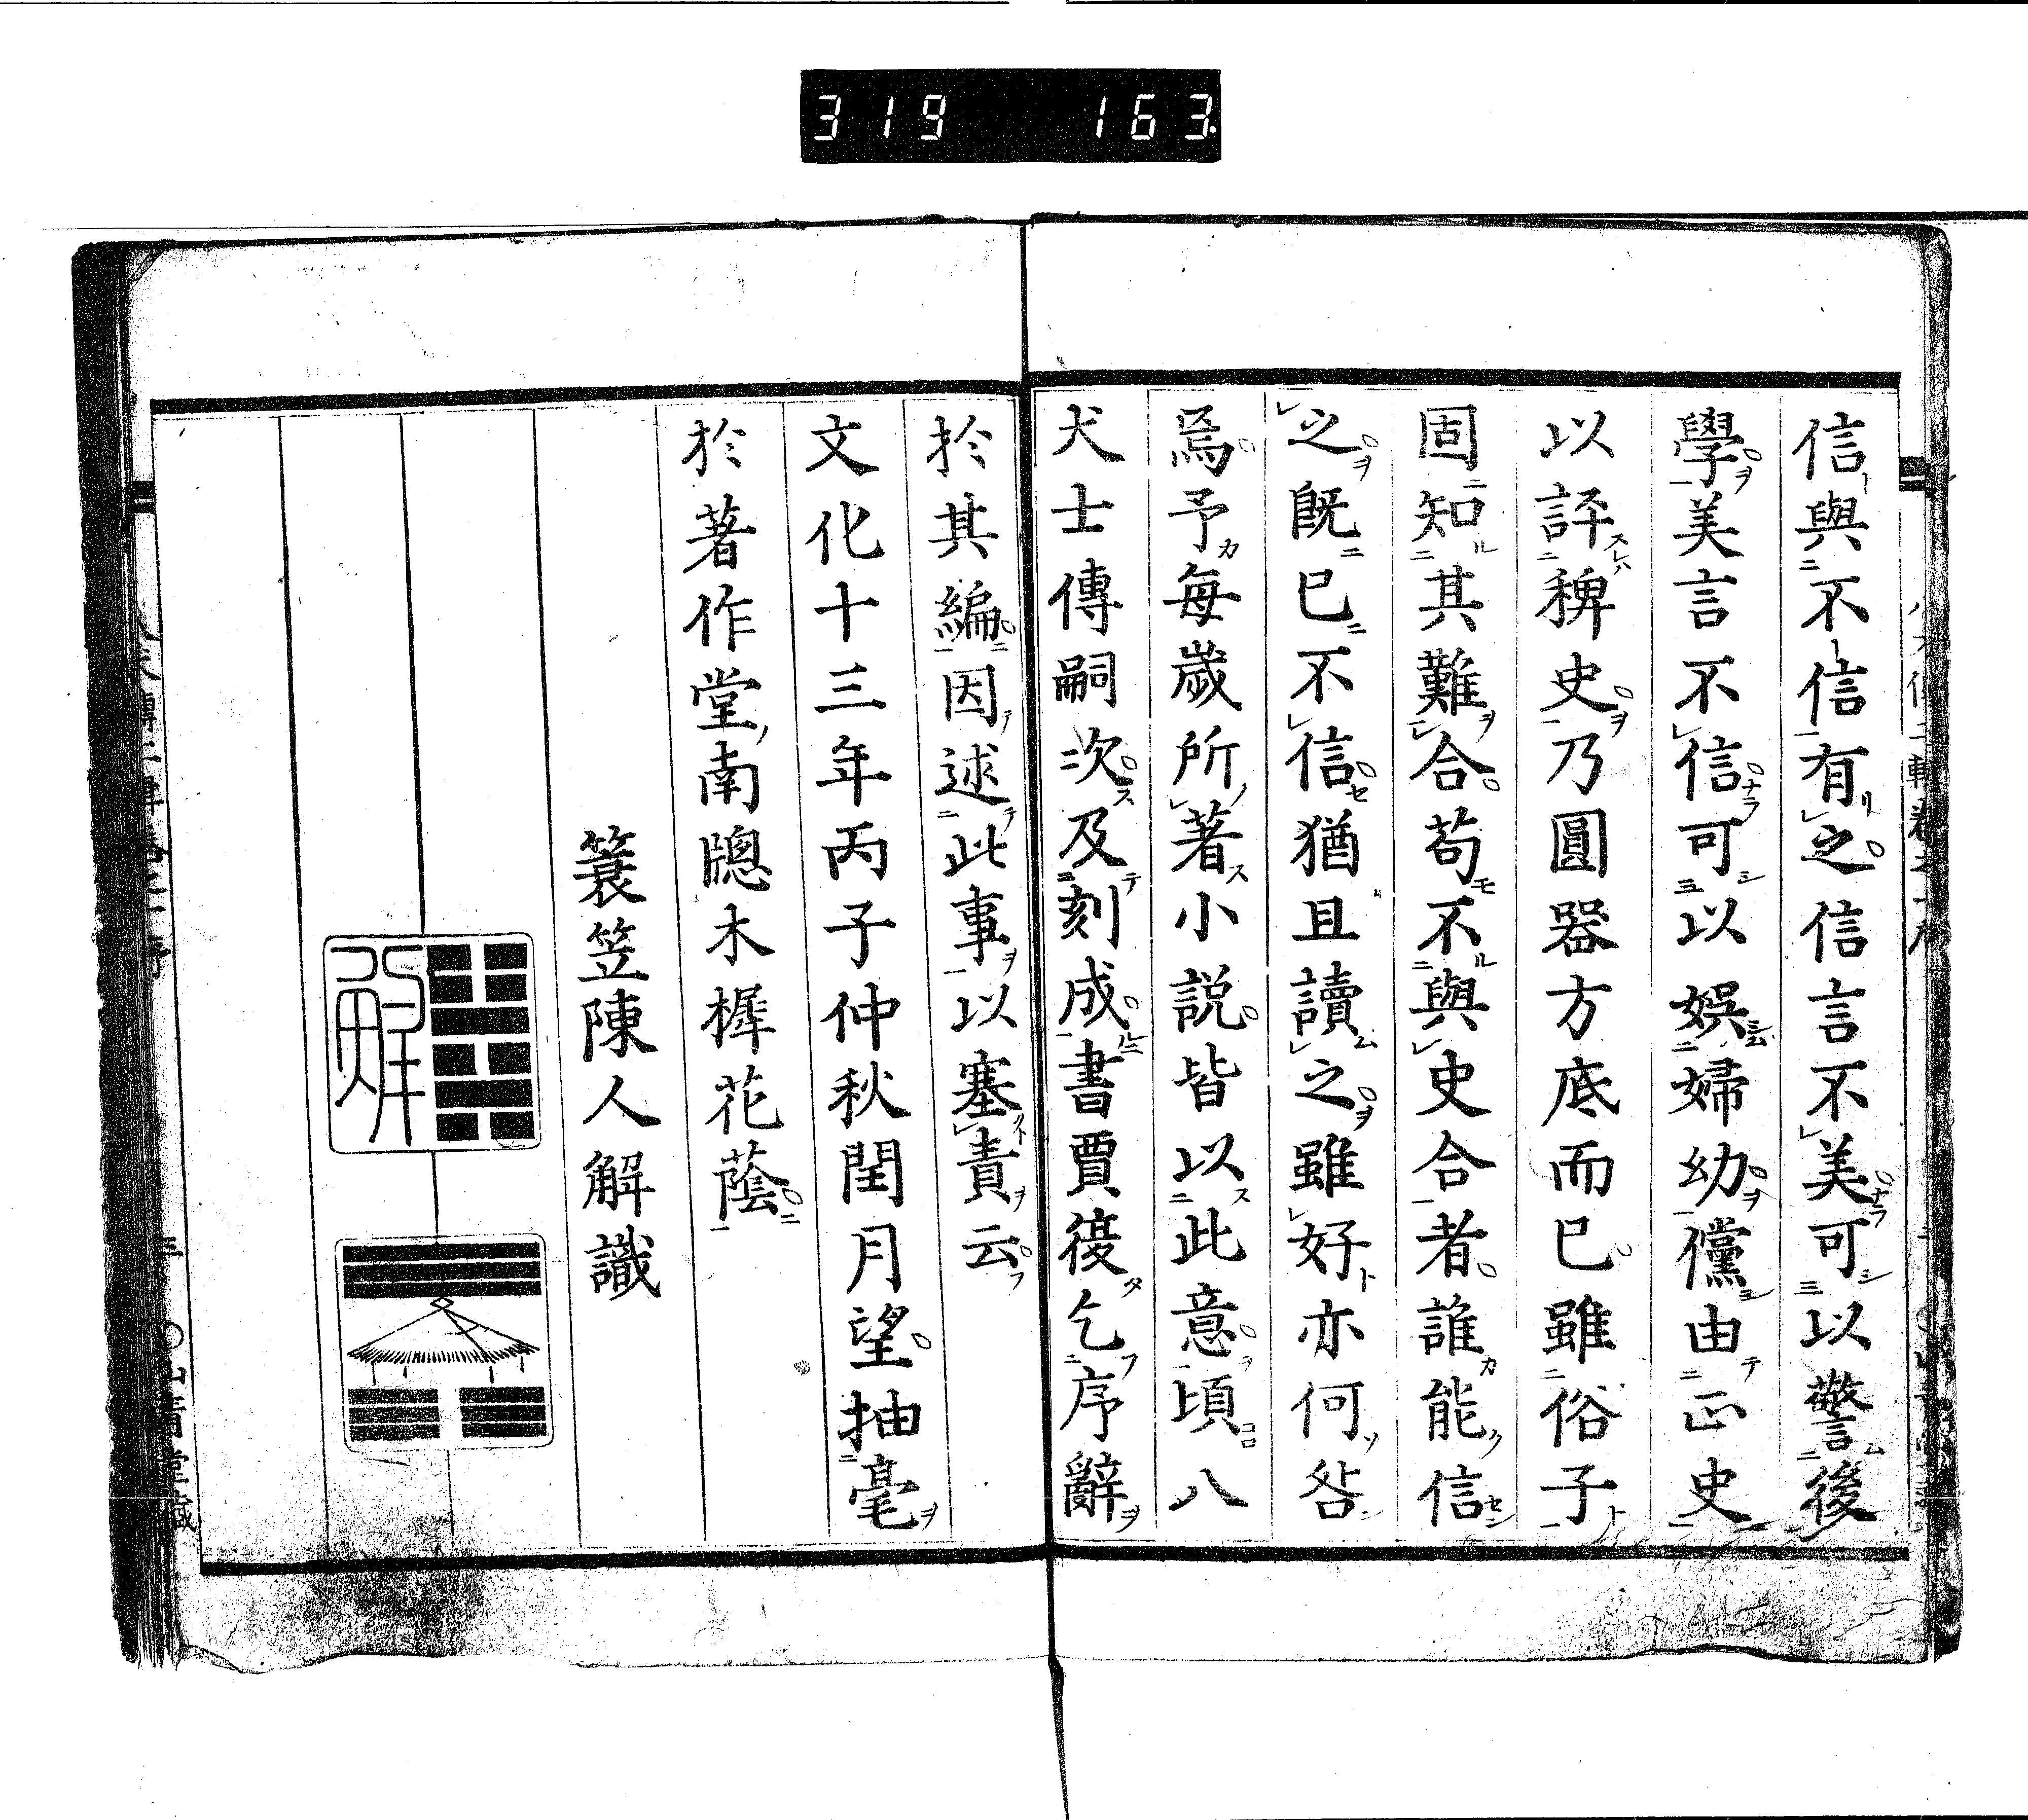 319 163
信與不信有之信言不美可以警後
學美言不信可以娯婦幼儻由正史
以評稗史乃圓器方底而已雖俗子
固知其難合苟不與史合者誰能信
之既已不信猶且讀之雖好亦何咎
焉予毎歳所著小説皆以此意頃八
犬士傳嗣次及刻成書賈復乞序辭
於其編因述此事以塞責云
文化十三年丙子仲秋閏月望抽毫
於著作堂南牕木樨花蔭
簑笠陳人解識
解